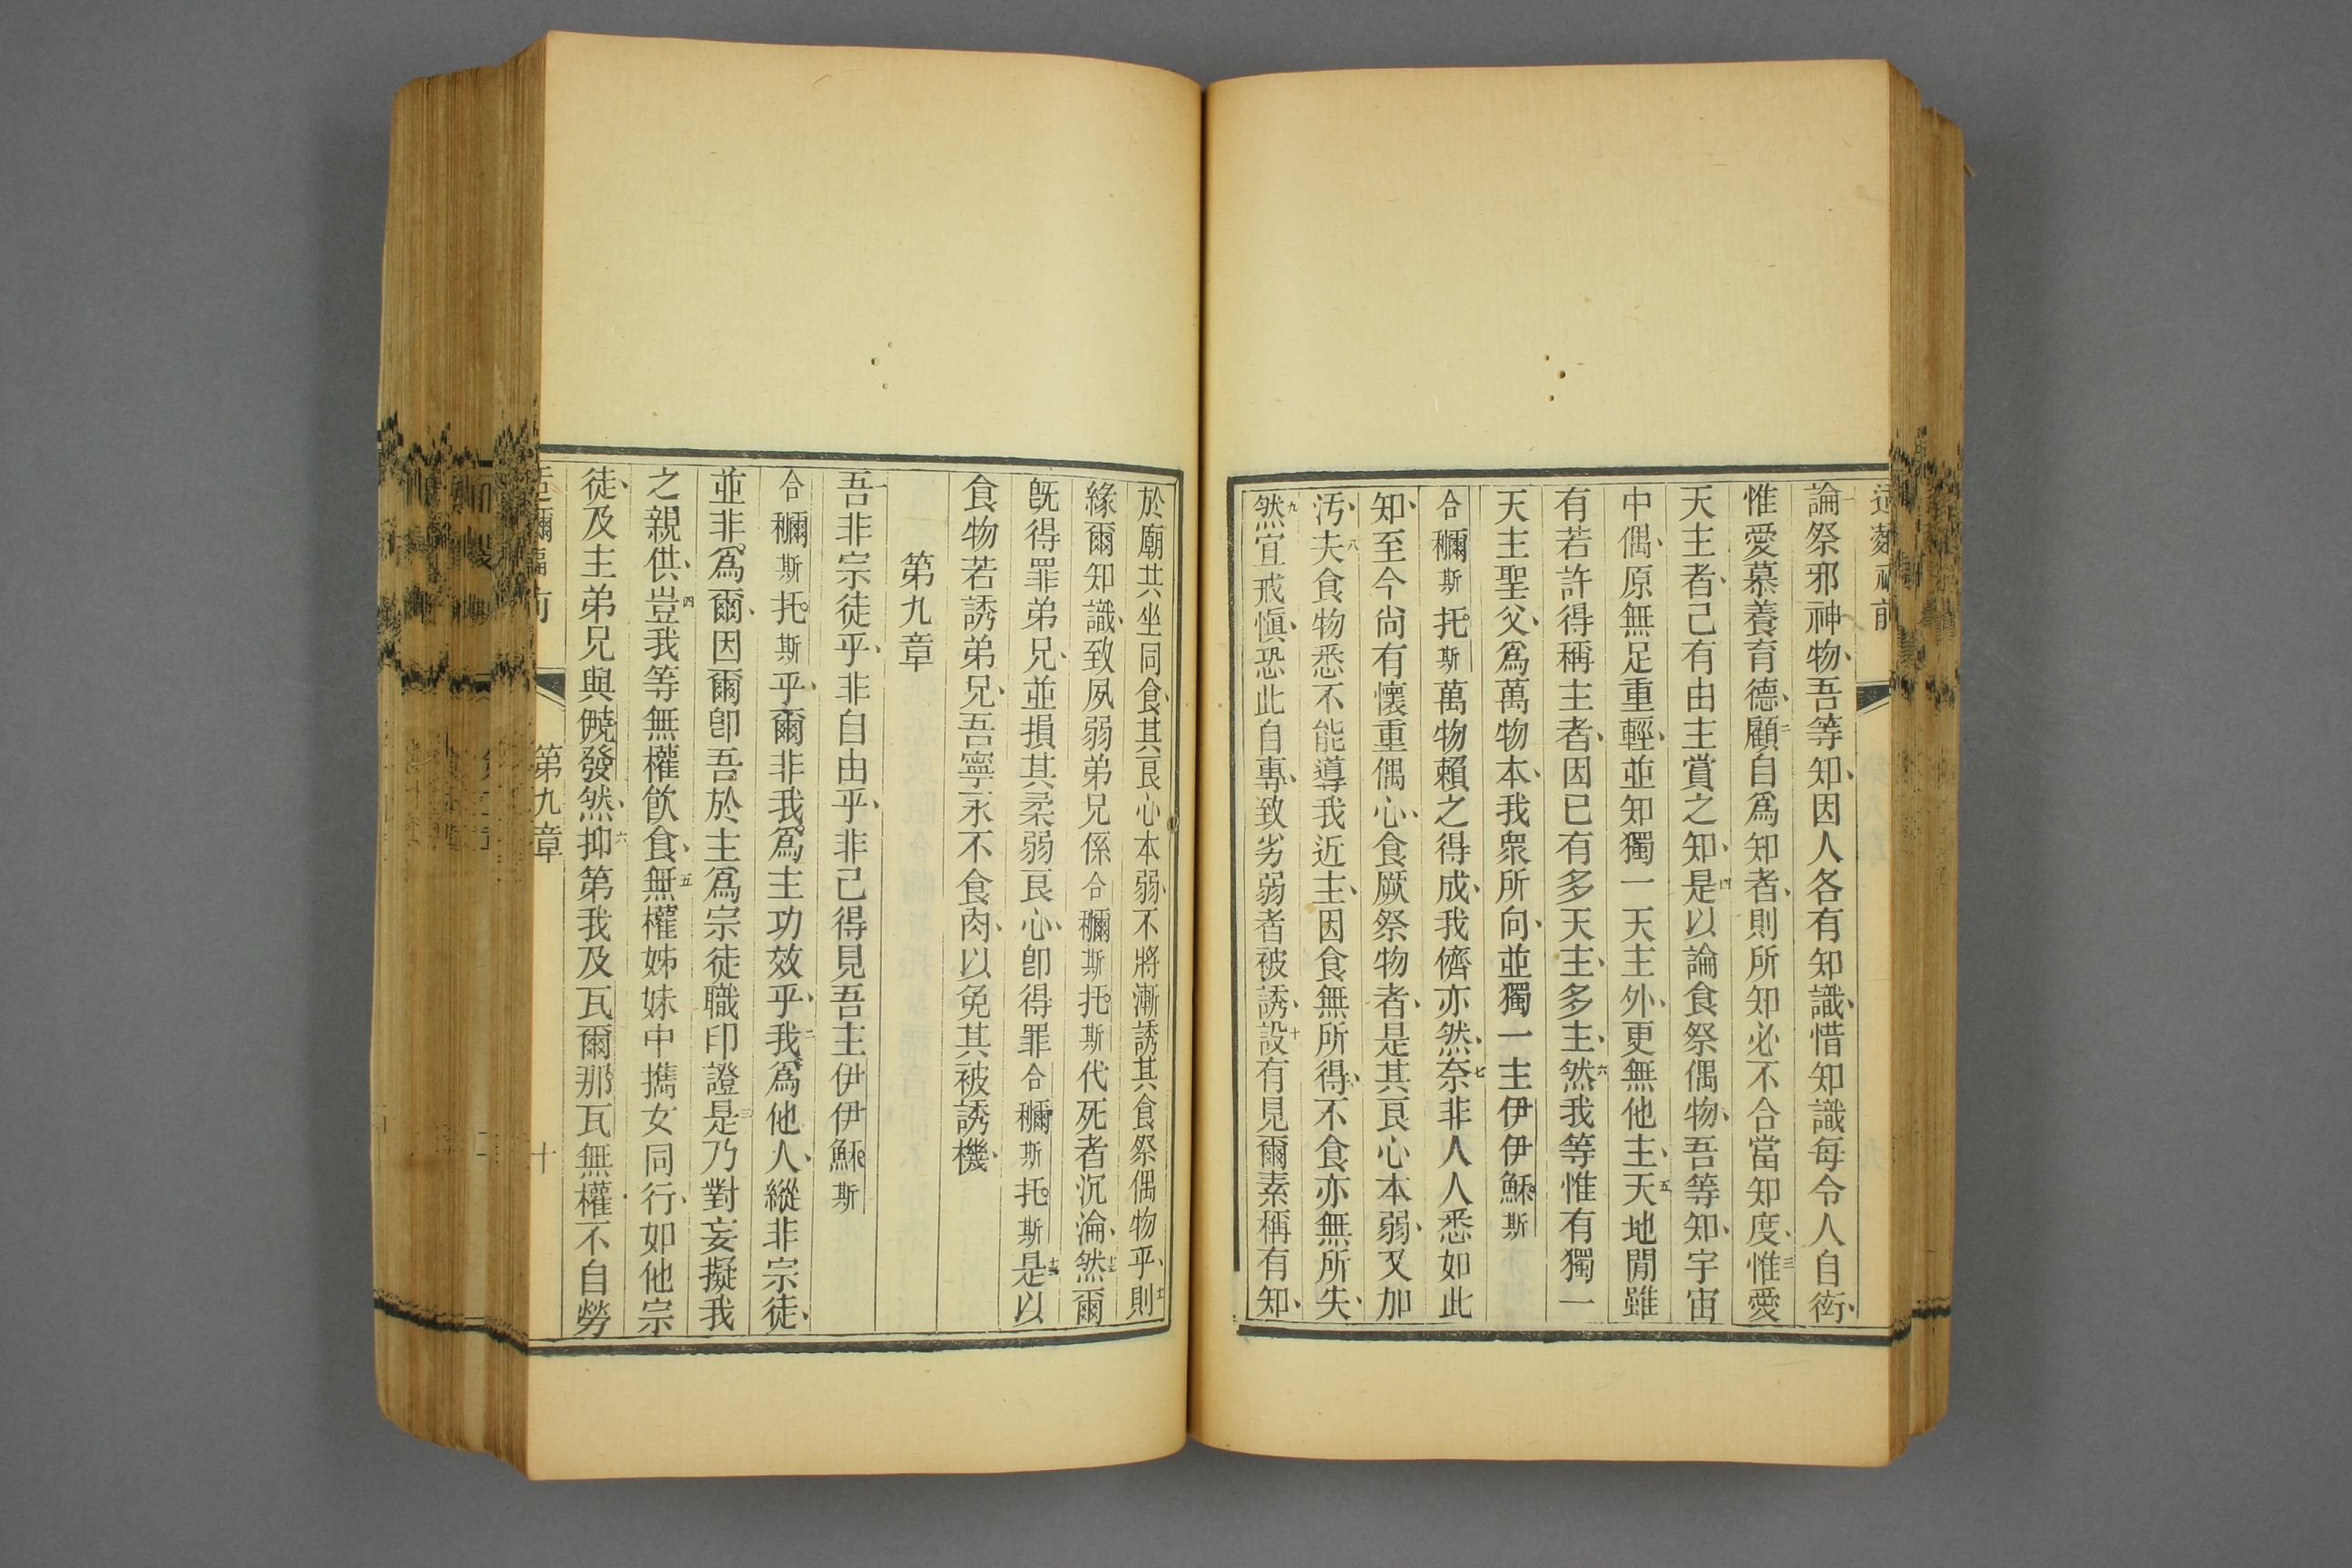 論祭邪神物、吾等知、因人各有知識、惜知識每令人自衒、
惟愛慕養育德、二顧自爲知者、則所知必不合當知度、三惟愛
天主者、己有由主賞之知、四是以論食祭偶物、吾等知、宇宙
中偶、原無足重輕、並知獨一天主外、更無他主、五天地間雖
有若許得稱主者、因已有多天主、多主、六然我等惟有獨一
天主聖父、爲萬物本、我衆所向、並獨一主伊伊穌斯
合穪斯托斯萬物賴之得成、我儕亦然、七奈非人人悉如此
知、至今尙有懷重偶心、食厥祭物者、是其良心本弱、又加
汚、八夫食物悉不能導我近主、因食無所得、不食亦無所失、
九然宜戒愼、恐此自專、致劣弱者被誘、十設有見爾素稱有知、
於廟共坐同食、其良心本弱、不將漸誘其食祭偶物乎、十一則
緣爾知識、致夙弱弟兄係合穪斯托斯代死者沉淪、十二然爾
旣得罪弟兄、並損其柔弱良心、卽得罪合穪斯托斯十三是以
食物若誘弟兄、吾寧永不食肉、以免其被誘機、
第九章
一吾非宗徒乎、非自由乎、非己得見吾主伊伊穌斯
合穪斯托斯乎、爾非我爲主功效乎、二我爲他人、縱非宗徒、
並非爲爾、因爾卽吾於主爲宗徒職印證、三是乃對妄擬我
之親供、四豈我等無權飮食、五無權姊妹中攜女同行、如他宗
徒、及主弟兄、與𩜙發然、六抑第我及瓦爾那瓦無權不自勞
第九章
十